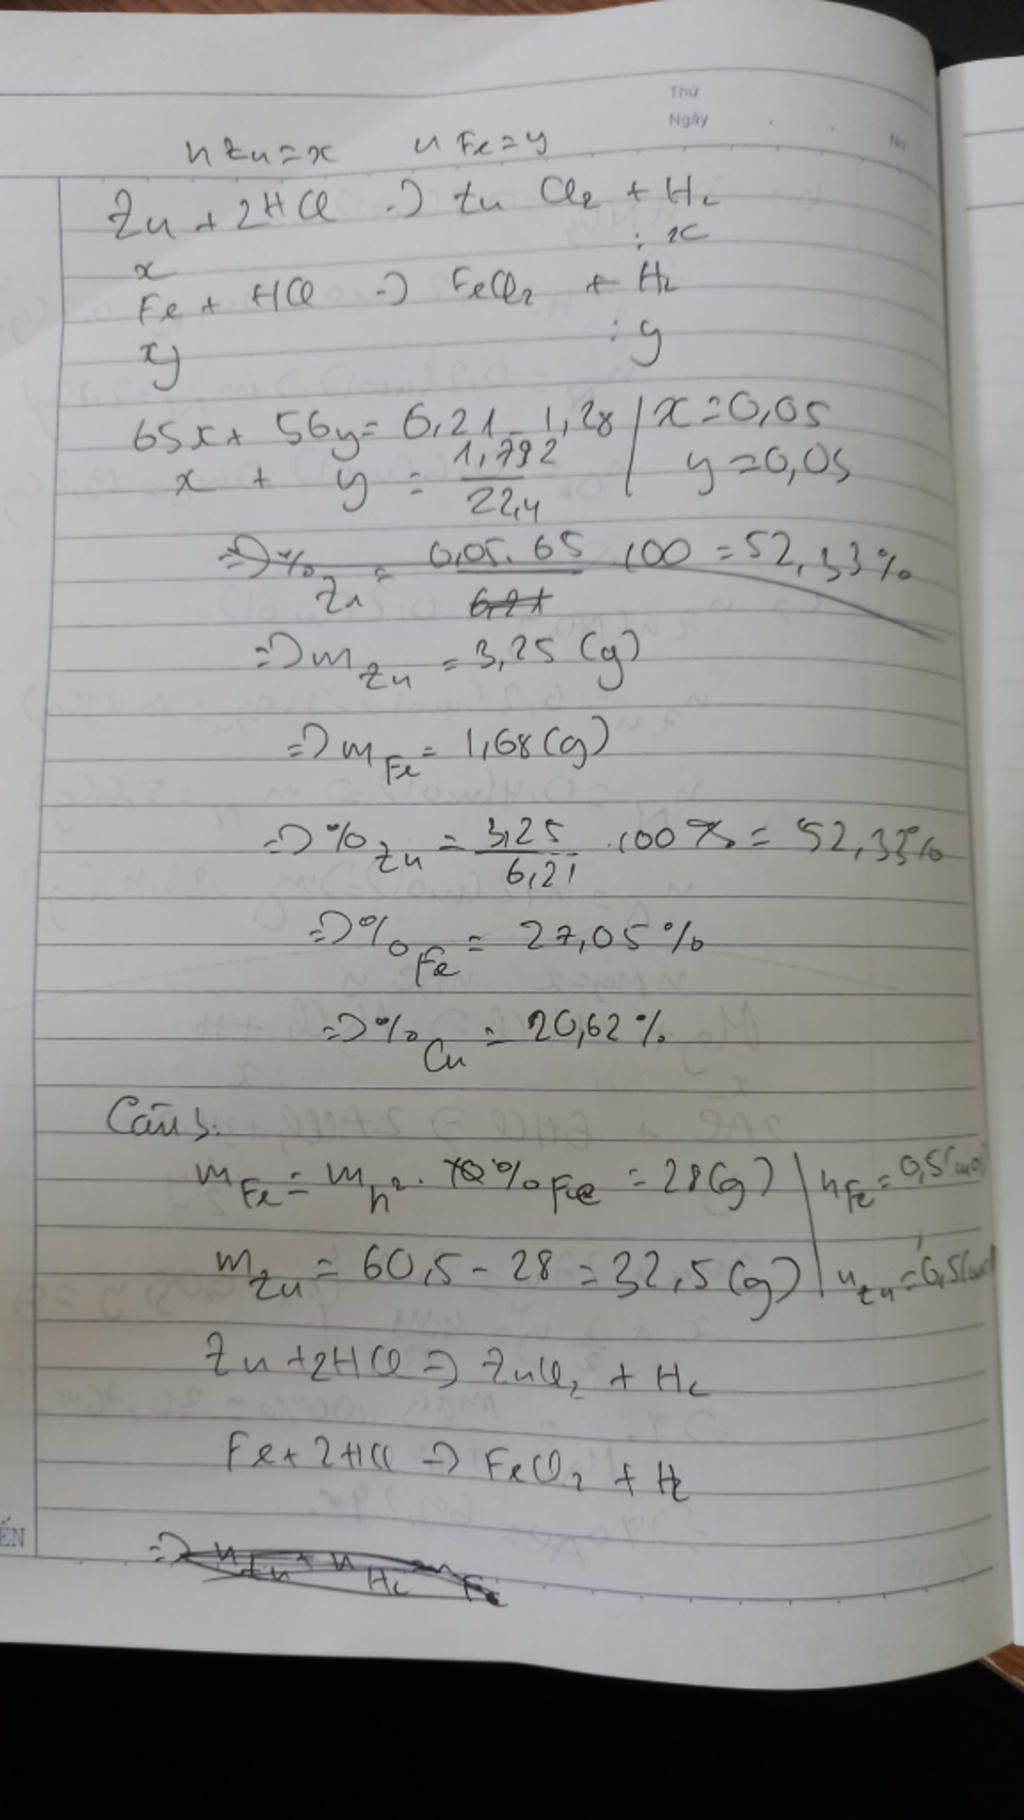 Thứ
Ngày
No.
nZn = x nFe = y
Zn + 2HCl => ZnCl2 + H2
x : x
Fe + HCl => FeCl2 + H2
xy : y
65x + 56y = 6,21 - 1,28 | x = 0,05
x + y = 1,792/22,4 | y = 0,03
=> %Zn = 0,05.65/6,21 .100 = 52,33%
=> mZn = 3,25 (g)
=> mFe = 1,68 (g)
=> %Zn = 3,25/6,21 .100% = 52,33%
=> %Fe = 27,05%
=> %Cu = 20,62%
Câu 5:
mFe = mh2 . %Fe = 28 (g) | nFe = 0,5 (mol)
mZn = 60,5 - 28 = 32,5 (g) | nZn = 0,5 (mol)
Zn + 2HCl => ZnCl2 + H2
Fe + 2HCl => FeCl2 + H2
ẾN